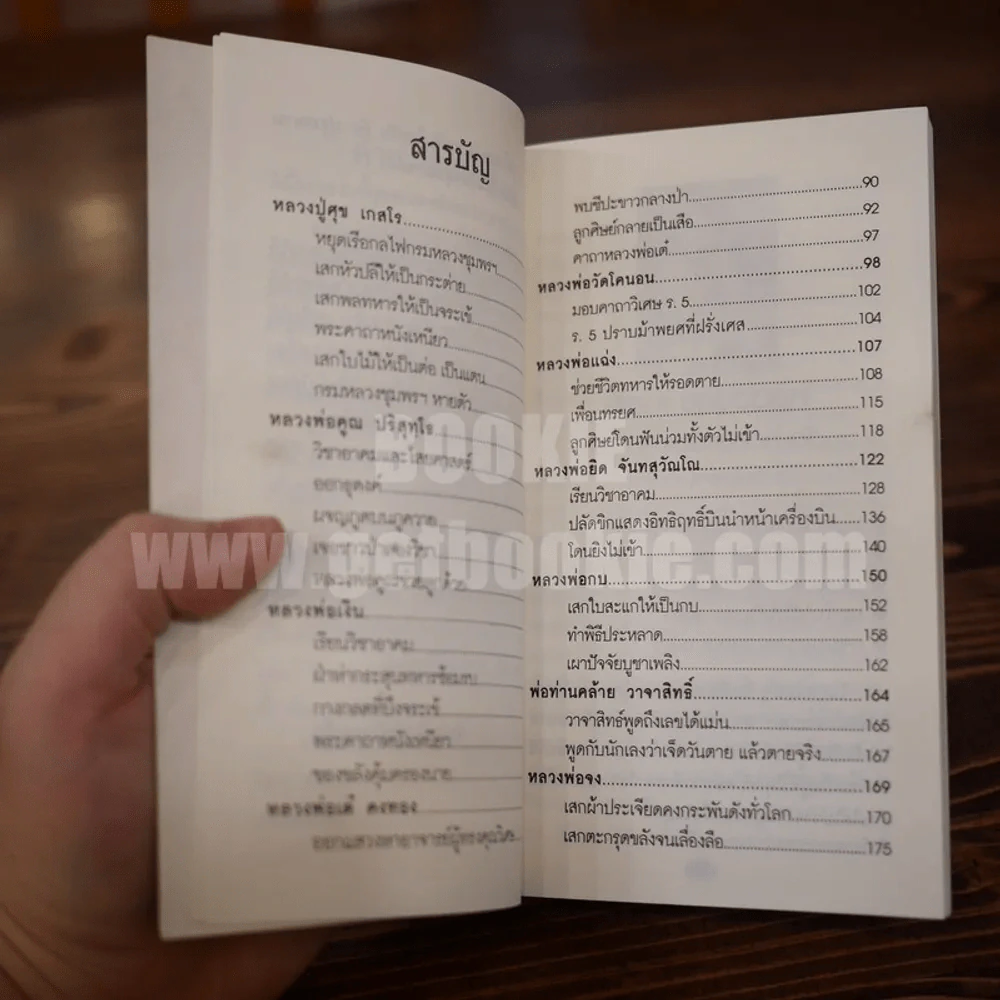 สารบัญ
หลวงปู่ศุข เกสโร
หยุดเรือกลไฟกรมหลวงชุมพรฯ
เสกหัวปลีให้เป็นกระต่าย
เสกพลทหารให้เป็นจระเข้
พระคาถาหนังเหนียว
เสกใบไม้ให้เป็นต่อ เป็นแตน
กรมหลวงชุมพรฯ หายตัว
หลวงพ่อคูณ ปริสุทฺโธ
วิชาอาคมและไสยศาสตร์
ออกธุดงค์
หลวงพ่อเงิน
เรียนวิชาอาคม
ฝ่าห่ากระสุนทหารซ้อมรบ
กางกลดที่บึงจระเข้
พระคาถาหนังเหนียว
ของขลังคุ้มครองนาย
หลวงพ่อเต๋ คงทอง
พบชีปะขาวกลางป่า 90
ลูกศิษย์กลายเป็นเสือ 92
คาถาหลวงพ่อเต๋ 97
หลวงพ่อวัดโคนอน 98
มอบคาถาวิเศษ ร. 5 102
ร. 5 ปราบม้าพยศที่ฝรั่งเศส 104
หลวงพ่อแฉ่ง 107
ช่วยชีวิตทหารให้รอดตาย 108
เพื่อนทรยศ 115
ลูกศิษย์โดนฟันน่วมทั้งตัวไม่เข้า 118
หลวงพ่อยิด จันทสุวัณโณ 122
เรียนวิชาอาคม 128
ปลัดขิกแสดงอิทธิฤทธิ์บินนำหน้าเครื่องบิน 136
โดนยิงไม่เข้า 140
หลวงพ่อกบ 150
เสกใบสะแกให้เป็นกบ 152
ทำพิธีประหลาด 158
เผาปัจจัยบูชาเพลิง 162
พ่อท่านคล้าย วาจาสิทธิ์ 164
วาจาสิทธิ์พูดถึงเลขได้แม่น 165
พูดกับนักเลงว่าเจ็ดวันตาย แล้วตายจริง 167
หลวงพ่อจง 169
เสกผ้าประเจียดคงกระพันดังทั่วโลก 170
เสกตะกรุดขลังจนเลื่องลือ 175
www.getbookie.com